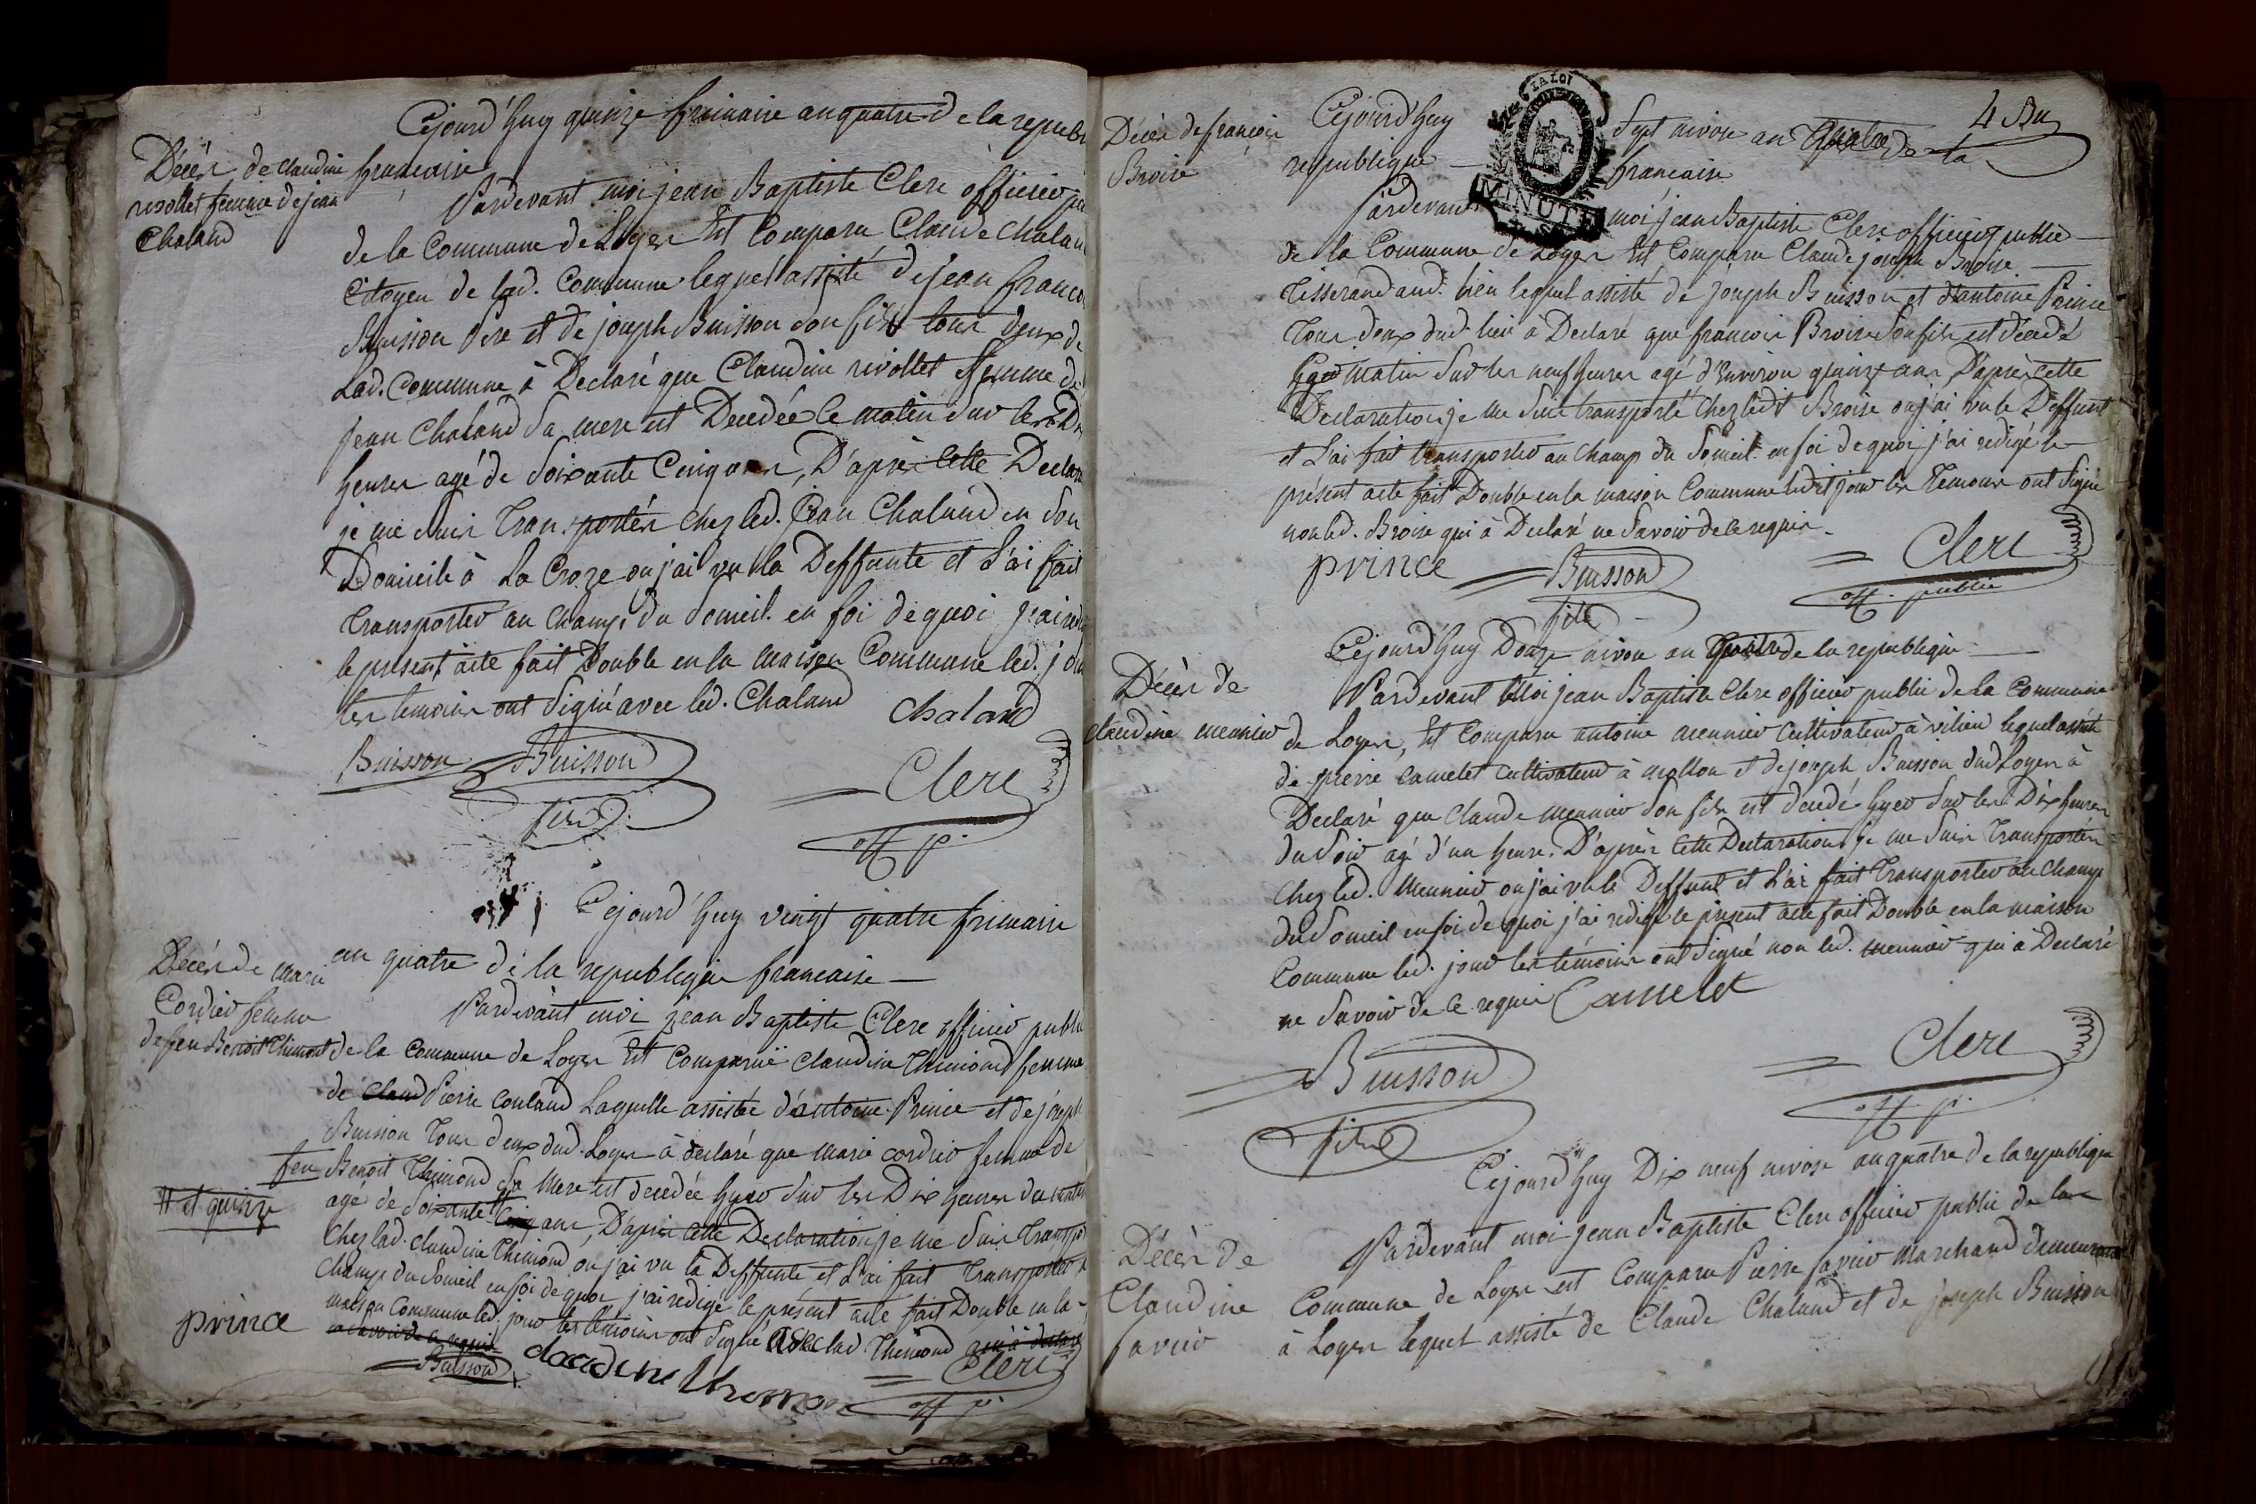 Cejourd'huy quinze frimaire an quatre de la republi
Décès de claudine
revollet femme de jean
Chaland
francaise
Pardevant moi jean Baptiste Clerc officier pu
de la Commune de Loyes Est Comparu Claude Chaland
Citoyen de lad. Commune lequel assisté de jean franco
Buisson Pere et de joseph Buisson son fils tous deux de
Lad. Commune à Declaré que Claudine revollet femme de
jean Chaland Sa mere est Decedée le matin Sur les Dix
heures agé de Soixante Cinq ans, D'après Cette Declara
je me Suis Transportés chez led. Jean Chaland en Son
Domicile à La Croze ou j'ai vu la Deffunte et L'ai fait
Transporter au champ du Someil. en foi de quoi j'ai redi
le present acte fait Double en la maison Commune led. jour
les temoins ont Signé avec led. Chaland
chaland
Buisson
Buisson
fils
Clerc
off. p.
Cejourd'huy vingt quatre frimaire
Décès de marie
Cordier femme
de feu Benoit Thimond
an quatre de la republique francaise
Pardevant moi jean Baptiste Clerc officier public
de la Commune de Loyes Est Comparuë Claudine Thimond femme
de Claud Pierre Couland Laquelle assistée d'antoine Prince et de joseph
Buisson Tous deux dud. Loyes à déclaré que marie cordier femme de
feu
Benoit Thimond Sa Mere est decedée hyer Sur les Dix heures du matin
# et quinze
agé de Soixante # Cinq ans, D'après Cette Declaration je me Suis Transpor
Chez lad. Claudine Thimond ou j'ai vu la Deffunte et L'ai fait Transporter a
Champ du Someil en foi de quoi j'ai redigé le présent acte fait Double en la
maison Commune led. jour les témoins ont Signé avec lad Thimond qui à declaré
ne Savoir de ce requis
prince
Buisson
claudine thimon
Clerc
off. p.
4 Bu
Décès de francois
Broire
Cejourd'huy Sept nivose an Quatre de la
republique francaise
LA LOI
MINUTE
Pardevant moi jean Baptiste Clerc officier public
de la Commune de Loyes Est Comparu Claude joseph Broire
Tisserand aud. lieu lequel assisté de joseph Buisson et d'antoine Prince
Tous deux dud. lieu à Declaré que francois Broire Son fils est décedé
hyer matin Sur les neuf heures agé d'Environ quinze ans, D'après Cette
Declaration je me Suis transporté Chez ledit Broire ou j'ai vu le Deffunt
et L'ai fait transporter au Champ du Someil. en foi de quoi j'ai redigé le
présent acte fait Double en la maison Commune ledit jour les Temoins ont Signé
non led. Broire qui à Declaré ne Savoir de ce requis.
prince
Buisson
fils
Clerc
off. public
Cejourd'huy Douze nivose an Quatre de la republique
Décès de
claudine meunier
Pardevant Moi jean Baptiste Clerc officier public de la Commune
de Loyes, Est Comparu antoine meunier Cultivateur à vilieu lequel assisté
de pierre Camelet Cultivateur à mollon et de joseph Buisson dud. Loyes à
Declaré que Claude meunier Son fils est decedé hyer Sur les Dix heures
du Soir agé d'un heure. D'après Cette Declaration je me Suis Transportés
Chez led. Meunier ou j'ai vu le Deffunt et L'ai fait Transporter au Champ
du Someil en foi de quoi j'ai redigé le present acte fait Double en la maison
Commune led. jour les témoins ont Signé non led. meunier qui à Declaré
ne Savoir de ce requis
Camelet
Buisson
fils
Clerc
off. p.
Cejourd'huy Dix neuf nivose an quatre de la republique
Décès de
Claudine
favier
Pardevant moi jean Baptiste Clerc officier public de la
Commune de Loyes est Comparu Pierre favier Marchand demeurant
à Loyes lequel assisté de Claude Chaland et de joseph Buisson